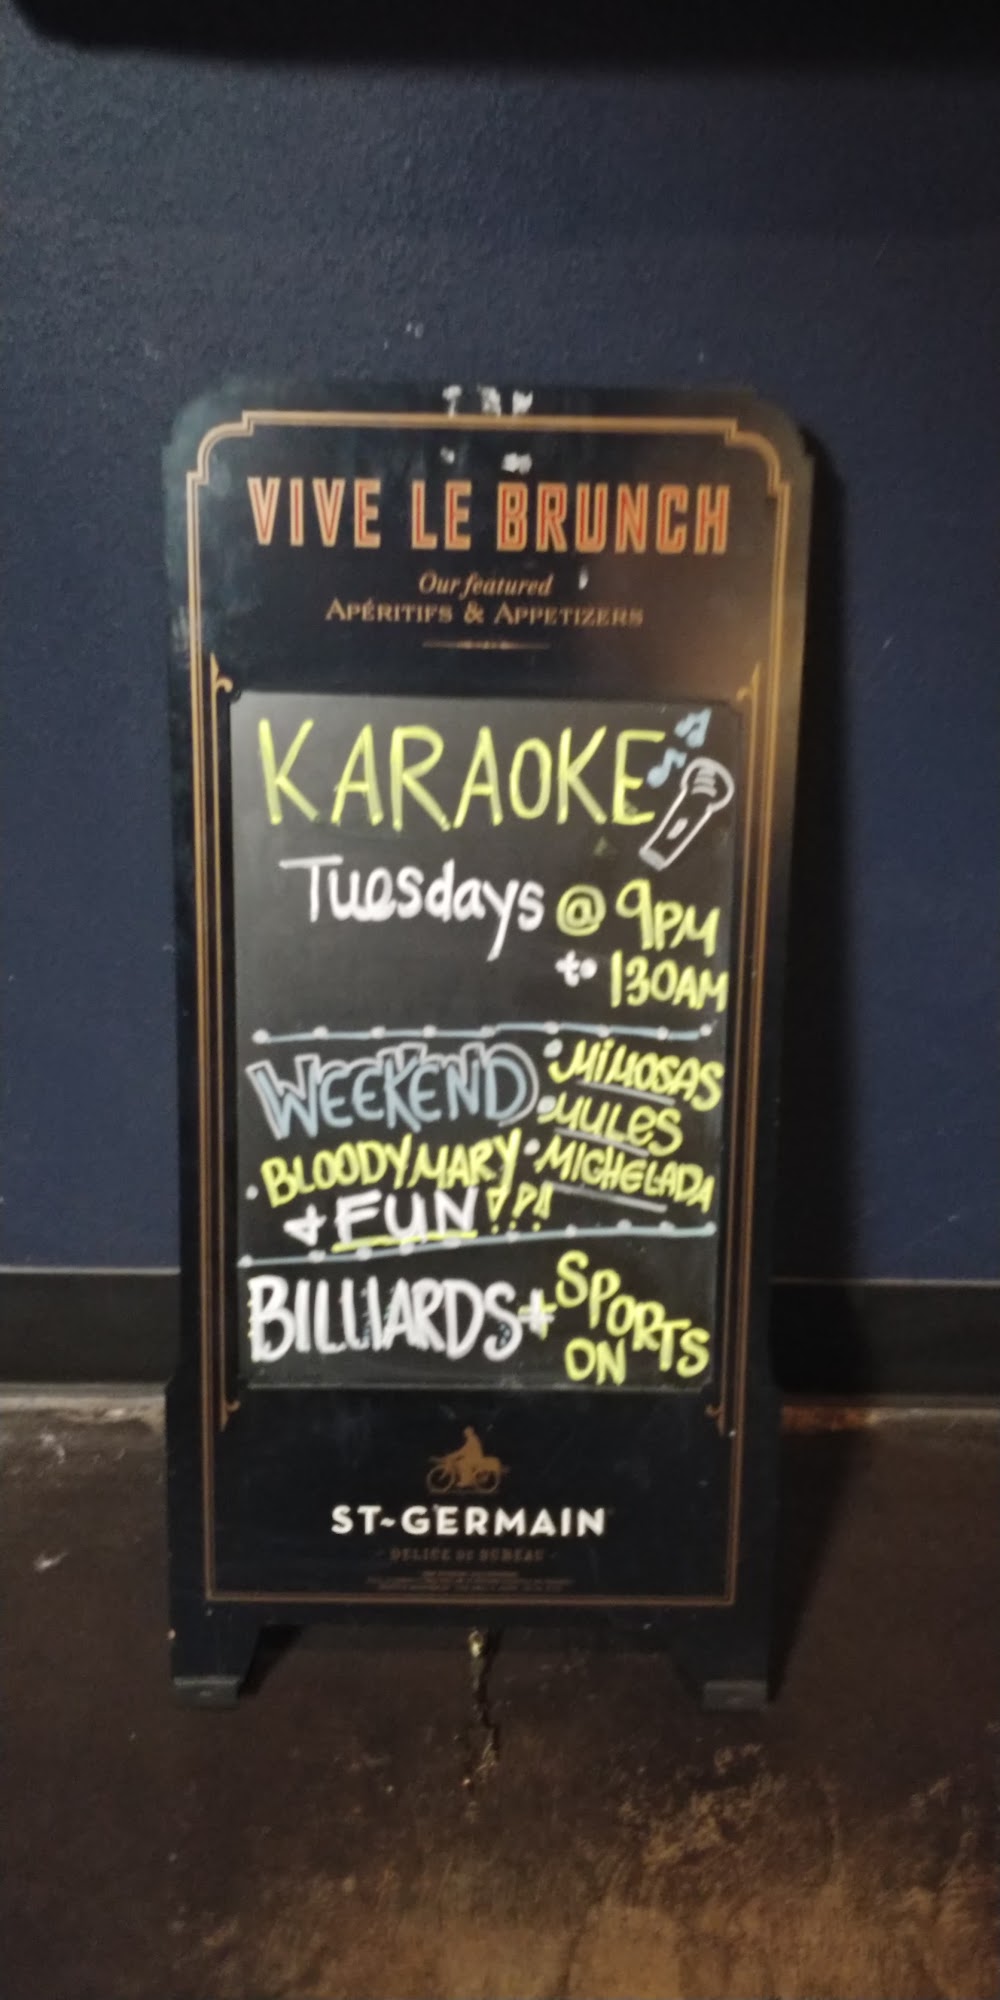 VIVE LE BRUNCH
Our featured
APÉRITIFS & APPETIZERS
KARAOKE
Tuesdays @ 9PM
to 130AM
WEEKEND
• BLOODY MARY
+ FUN !!!
• MIMOSAS
• MULES
• MICHELADA
BILLIARDS + SPORTS
ON
ST~GERMAIN